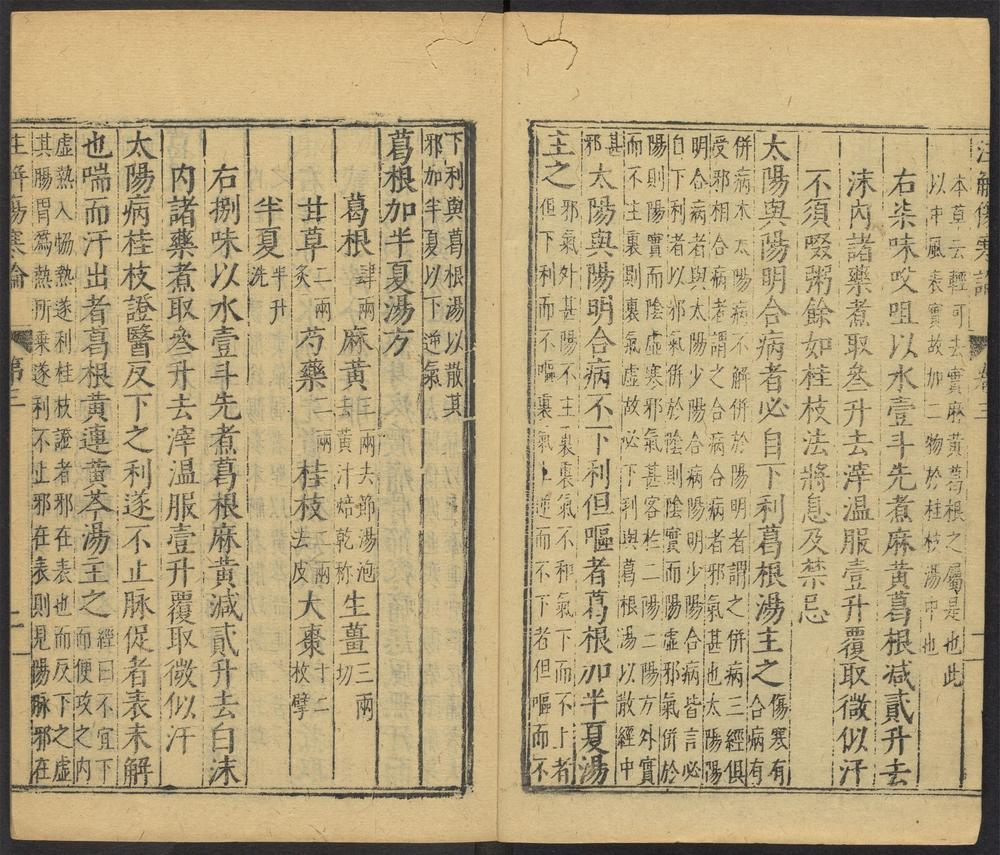 注解傷寒論 卷三 一
本草云輕可去實麻黄葛根之屬是也此
以中風表實故加二物於桂枝湯中也
右柒味㕮咀以水壹斗先煮麻黄葛根减貳升去
沫内諸藥煮取叁升去滓温服壹升覆取微似汗
不須啜粥餘如桂枝法將息及禁忌
太陽與陽明合病者必自下利葛根湯主之傷寒有
合病有
併病本太陽病不解併於陽明者謂之併病三經俱
受邪相合病者謂之合病合病者邪氣甚也太陽陽
明合病者與太陽少陽合病陽明少陽合病皆言必
自下利者以邪氣併於陰則陰實而陽虛邪氣併於
陽則陽實而陰虛寒邪氣甚客於二陽二陽方外實
而不主裏則裏氣虛故必下利與葛根湯以散經中
甚
邪
太陽與陽明合病不下利但嘔者葛根加半夏湯
主之邪氣外甚陽不主裏裏氣不和氣下而不上者
但下利而不嘔裏氣上逆而不下者但嘔而不
下利與葛根湯以散其
邪加半夏以下逆氣
葛根加半夏湯方
葛根肆兩 麻黄三兩去節湯泡去黄汁焙乾称 生薑三兩切
甘草二兩炙 芍藥二兩 桂枝二兩去皮 大棗十二枚擘
半夏半升洗
右捌味以水壹斗先煮葛根麻黄减貳升去白沫
内諸藥煮取叁升去滓温服壹升覆取微似汗
太陽病桂枝證醫反下之利遂不止脉促者表未解
也喘而汗出者葛根黄連黄芩湯主之經曰不宜下
而便攻之内
虛熱入恊熱遂利桂枝證者邪在表也而反下之虛
其腸胃爲熱所乘遂利不止邪在表則見陽脉邪在
注解傷寒論 第三